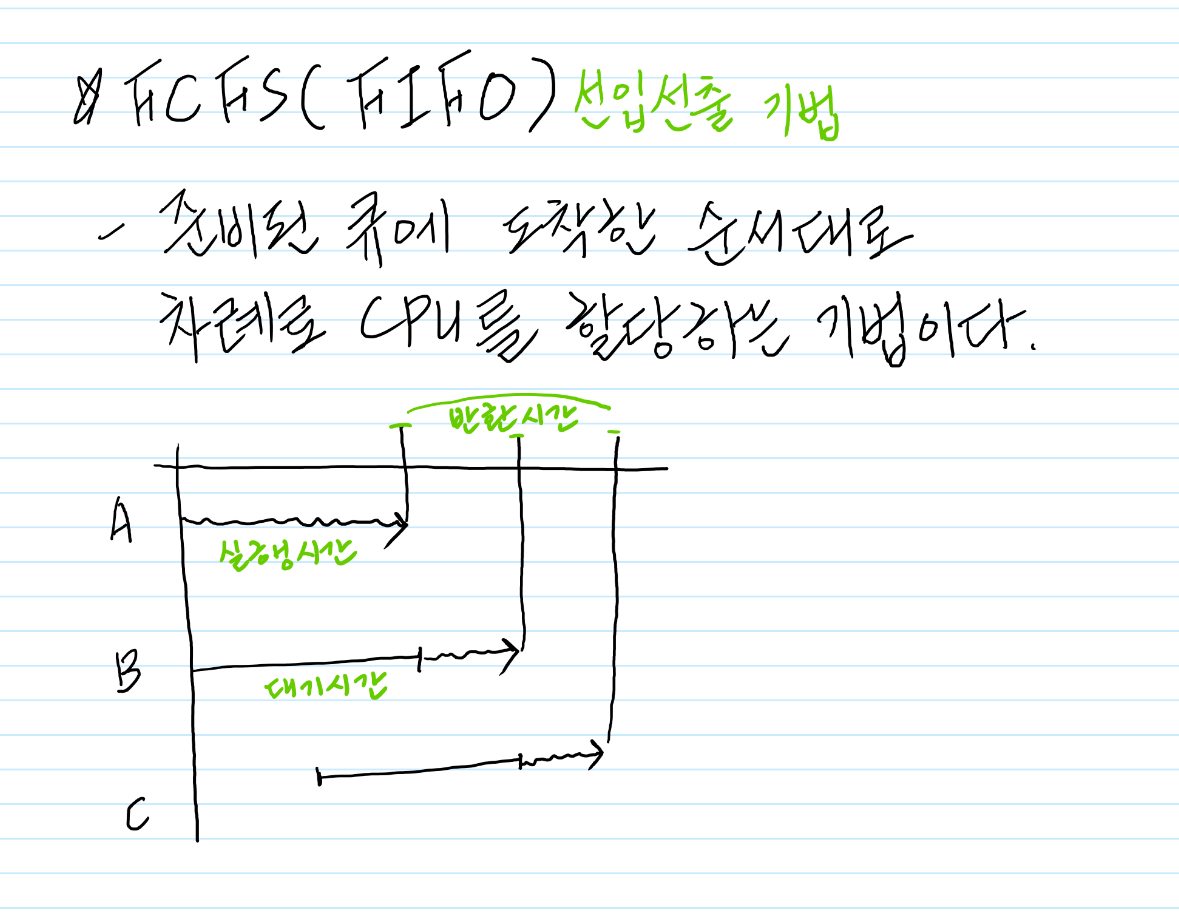 ☆ FCFS(FIFO) 선입선출 기법
- 준비된 큐에 도착한 순서대로
차례로 CPU를 할당하는 기법이다.
반환시간
A
실행시간
B
대기시간
C